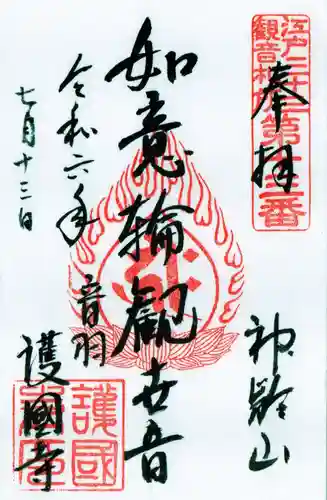 奉拝
江戸三十三
観音札所
第十三番
神齢山
如意輪観世音
令和六年
七月十三日
音羽
護國寺
護國